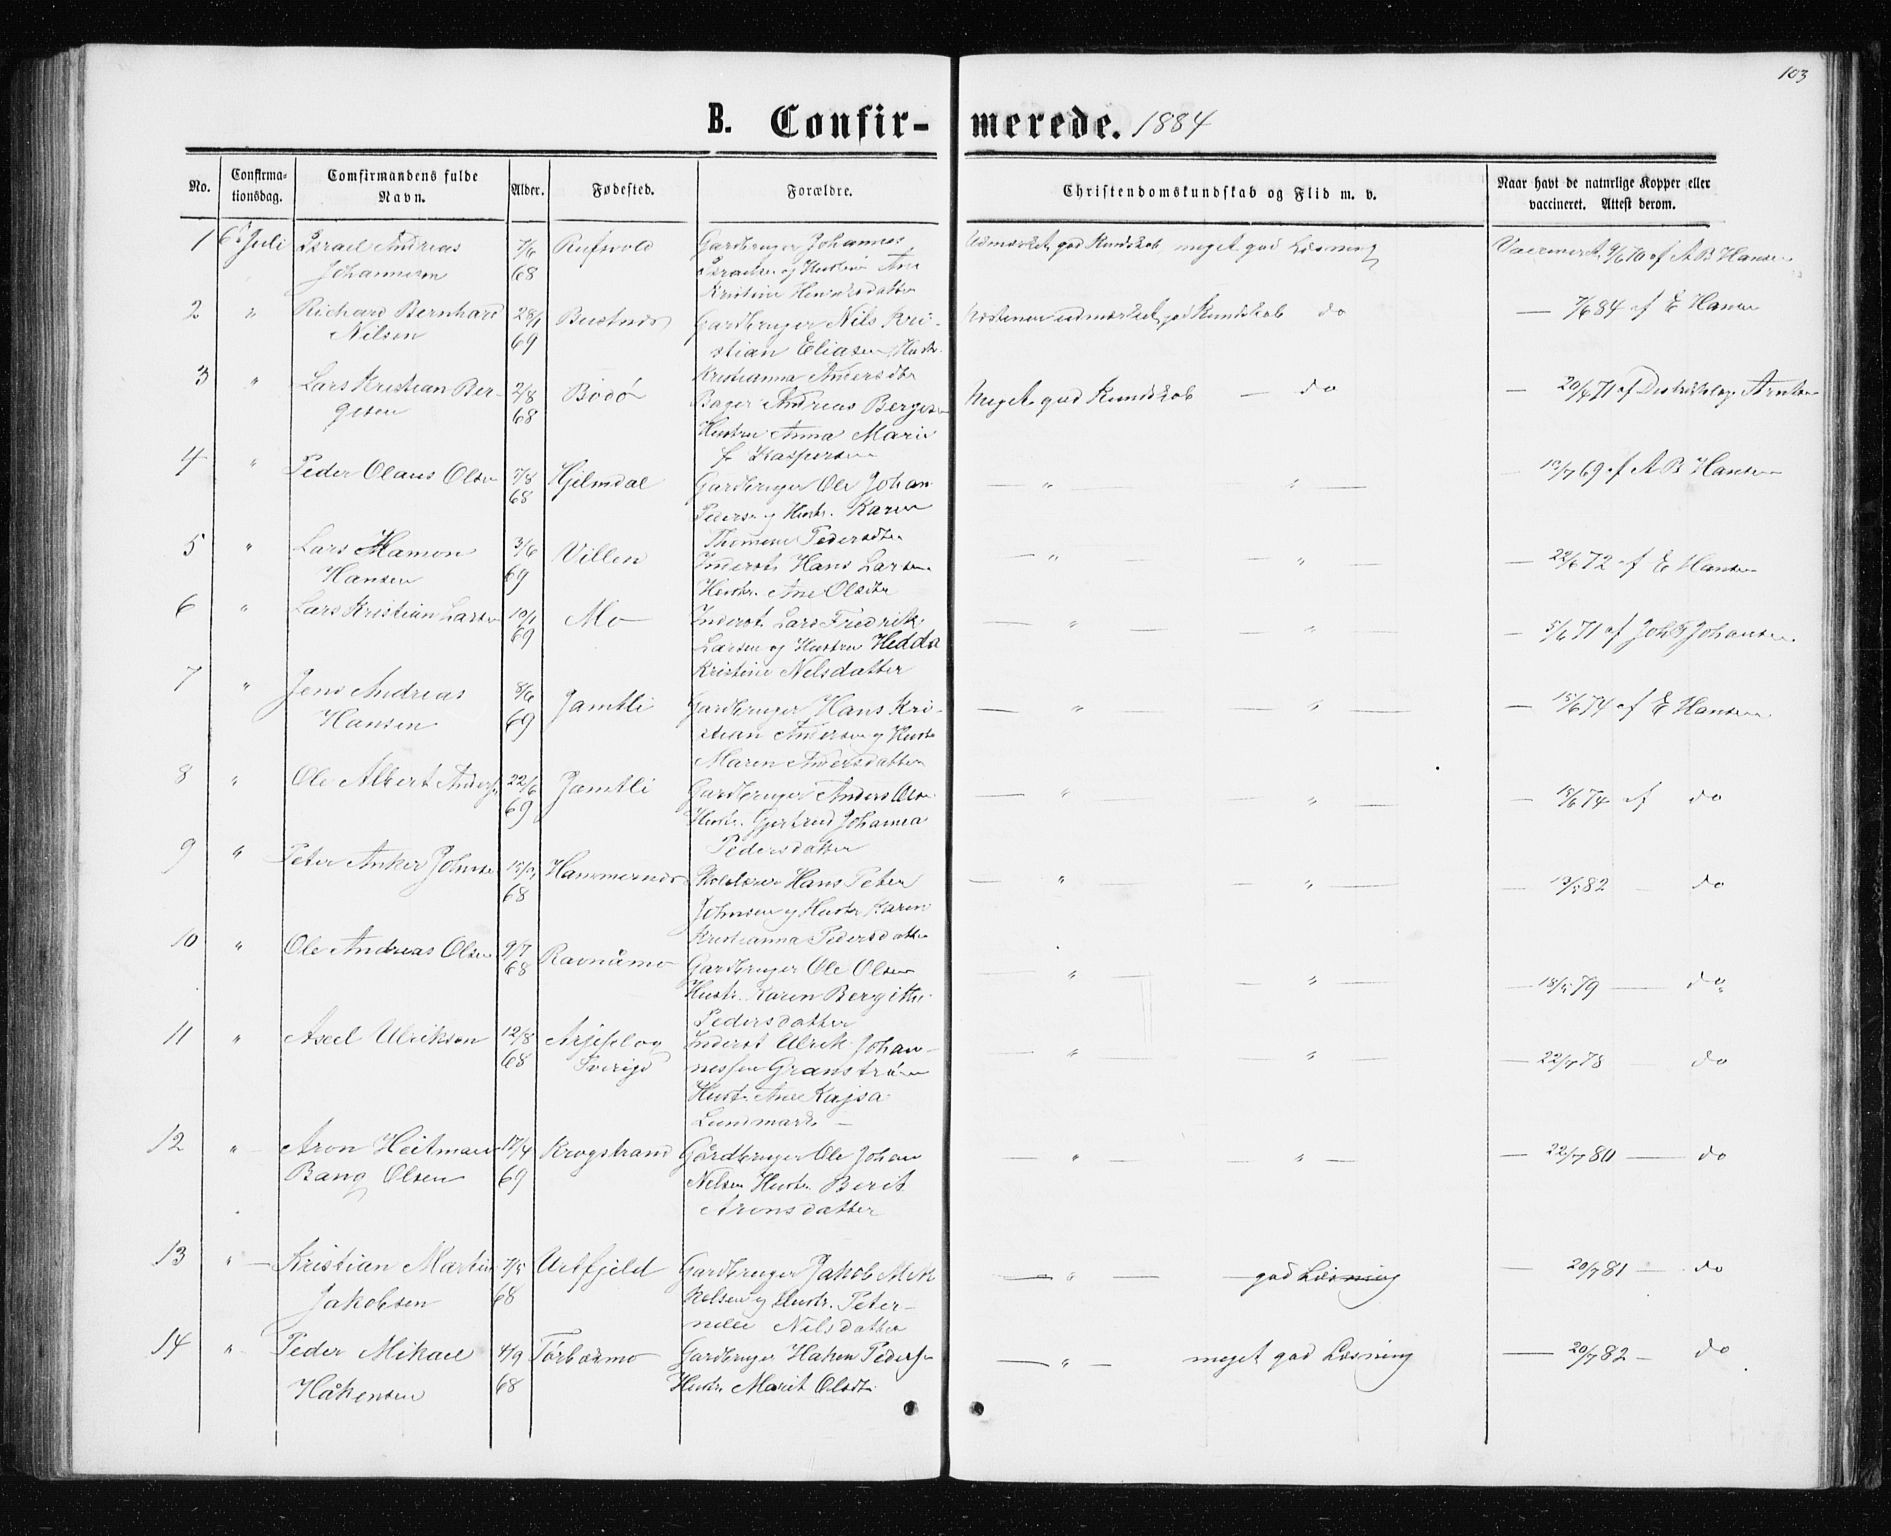 103
B. Confir- merede. 1884
No. Confirma- tionsdag. Comfirmandens fulde Navn. Alder. Fødested. Forældre. Christendomskundskab og Flid m. v. Naar havt de naturlige Kopper eller vaccineret. Attest derom.
1 6 Juli Israel Andreas 7/6 Rufsvold Gardbruger Johannes Udmærket god Kundskab meget god Læsning Vaccineret 9/6 70 af A B Hansen
Johannesen 68 Israelsen og Hustru Ane
Kristine Henriksdatter
2 " Richard Bernhard 28/1 Bustnes Gardbruger Nils Kri- Næsten udmærket god Kundskab do — 7/6 84 af E Hansen
Nilsen 69 stian Eliasen Hustr.
Kristianna Andersdtr
3 " Lars Kristian Ber- 2/8 Bodø Bager Andreas Bergesen Meget god Kundskab — do — 20/4 71 af Distriktslæge Arntsen
gesen 68 Hustru Anna Marie
f. Kaspersen
4 " Peder Olaus Olsen 7/8 Hjelmdal Gardbruger Ole Johan — " — " — — 12/7 69 af A B Hansen
68 Pedersen og Hustr. Karen
Thomine Pedersdtr
5 " Lars Hamon 3/6 Villen Inderst Hans Larsen — " — " — — 22/6 72 af E Hansen
Hansen 69 Hustr. Ane Olsdtr
6 " Lars Kristian Larsen 10/1 Mo Inderst Lars Fredrik — " — " — — 5/6 71 af Joh Johansen
69 Larsen og Hustru Hedda
Kristine Nelsdatter
7 " Jens Andreas 8/6 Jamtli Gardbruger Hans Kri- — " — " — — 15/6 74 af E Hansen
Hansen 69 stian Andersen og Hustr
Maren Andersdatter
8 " Ole Albert Anders. 22/6 Jamtli Gardbruger Anders Olsen — " — " — — 15/6 74 af do
69 Hustr. Gjertrud Johanna
Pedersdatter
9 " Peter Anker Johnsen Hammernes Skolelærer Hans Peter — " — " — — 13/5 82 — do
68 Johnsen og Hustr Karen
Kristianna Pedersdatter
10 " Ole Andreas Olsen 9/7 Ravnåmo Gardbruger Ole Olsen — " — " — — 79 — do
68 Hustr. Karen Bergithe
Pedersdatter
11 " Axel Ulriksen 12/8 Arjeplog Inderst Ulrik Johan- — " — " — — 22/7 78 — do
68 Sverige nessen Granstrøm
Hustr. Ane Kajsa
Lundmark —
12 " Aron Heitman 17/4 Krogstrand Gårdbruger Ole Johan — " — " — — 22/7 80 — do
Bang Olsen 69 Nelsen Hustr Berit
Aronsdatter
13 " Kristian Martin 7/5 Urtfjeld Gardbruger Jakob Mik — " — god Læsning — 20/7 81 — do
Jakobsen 68 kelsen og Hustr. Peter-
nelle Nilsdatter
14 " Peder Mikael 4/9 Tørbakmo Gardbruger Haken Peders. — " — meget god Læsning — 20/7 82 — do
Håkensen 68 Hustr Marit Olsdtr